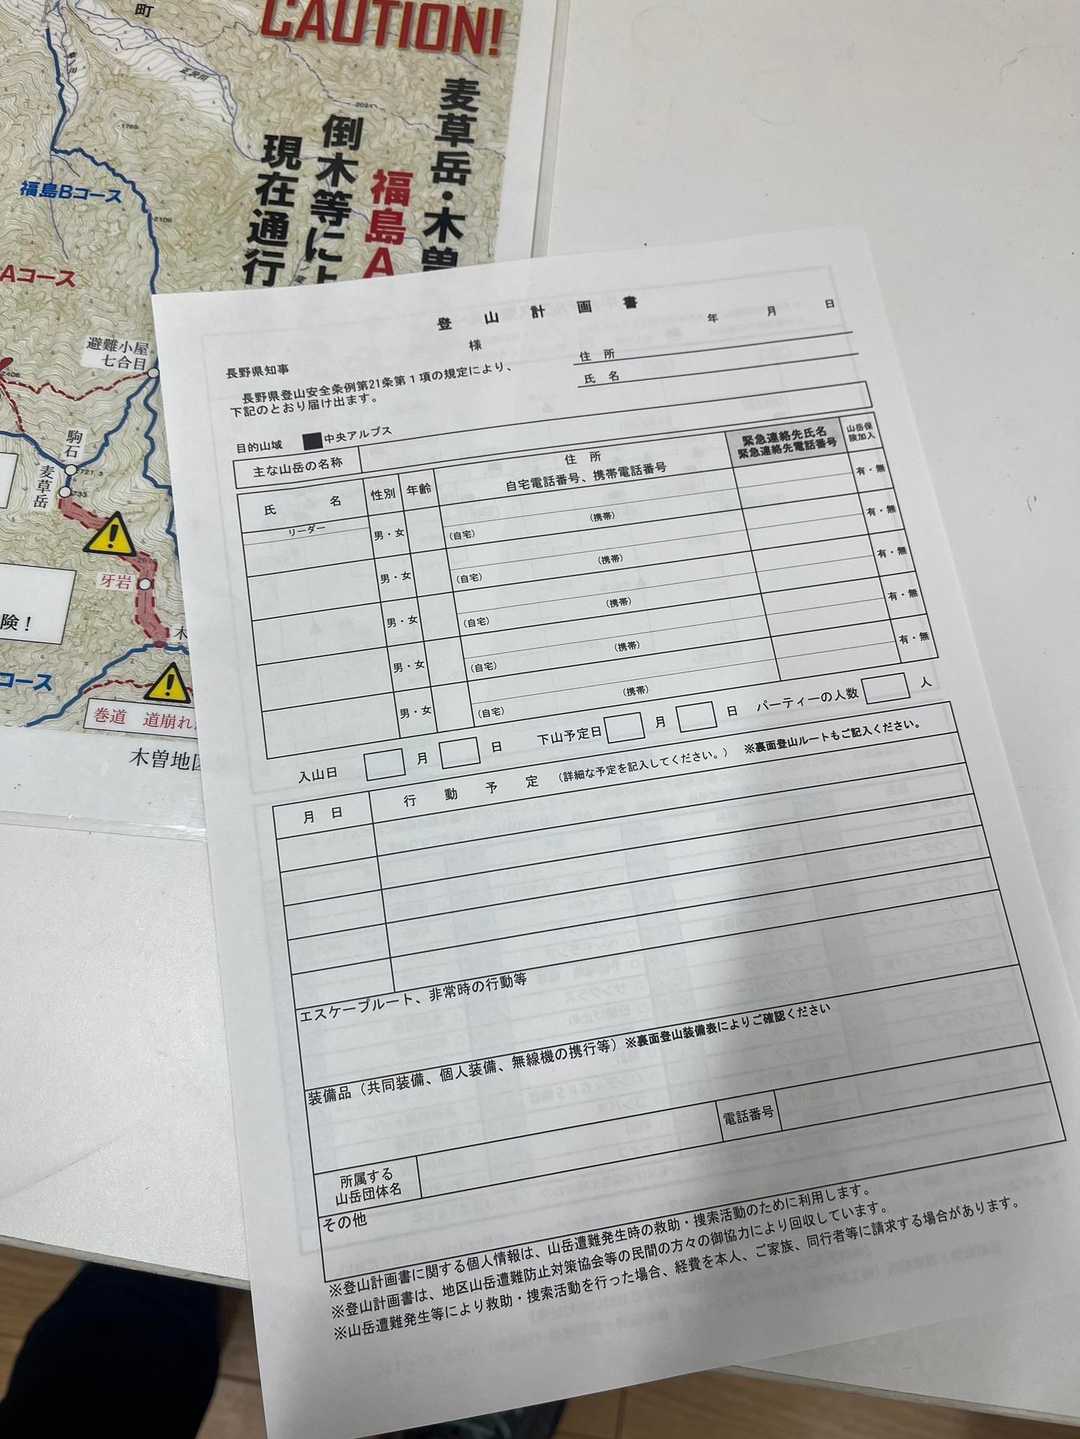 町
CAUTION!
麦草岳・木曽
福島A
倒木等によ
現在通行
福島Bコース
Aコース
避難小屋
七合目
駒石
麦草岳
牙岩
険！
コース
巻道 道崩れ
木曽地区
登山計画書
年 月 日
様
長野県知事
住 所
氏 名
長野県登山安全条例第21条第１項の規定により、
下記のとおり届け出ます。
目的山域 ■中央アルプス
主な山岳の名称
氏 名 性別 年齢 住 所 緊急連絡先氏名 山岳保
自宅電話番号、携帯電話番号 緊急連絡先電話番号 険加入
リーダー 男・女 (自宅) (携帯) 有・無
男・女 (自宅) (携帯) 有・無
男・女 (自宅) (携帯) 有・無
男・女 (自宅) (携帯) 有・無
男・女 (自宅) (携帯) 有・無
入山日 月 日 下山予定日 月 日 パーティーの人数 人
月 日 行 動 予 定 (詳細な予定を記入してください。) ※裏面登山ルートもご記入ください。
エスケープルート、非常時の行動等
装備品（共同装備、個人装備、無線機の携行等）※裏面登山装備表によりご確認ください
所属する
山岳団体名
電話番号
その他
※登山計画書に関する個人情報は、山岳遭難発生時の救助・捜索活動のために利用します。
※登山計画書は、地区山岳遭難防止対策協会等の民間の方々の御協力により回収しています。
※山岳遭難発生等により救助・捜索活動を行った場合、経費を本人、ご家族、同行者等に請求する場合があります。